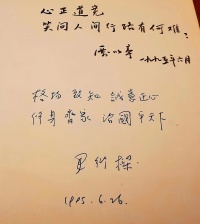 心正道宽
笑问人间行路有何難？
一九九五年六月
格物致知 誠意正心
修身齊家 治國平天下
1995.6.26.